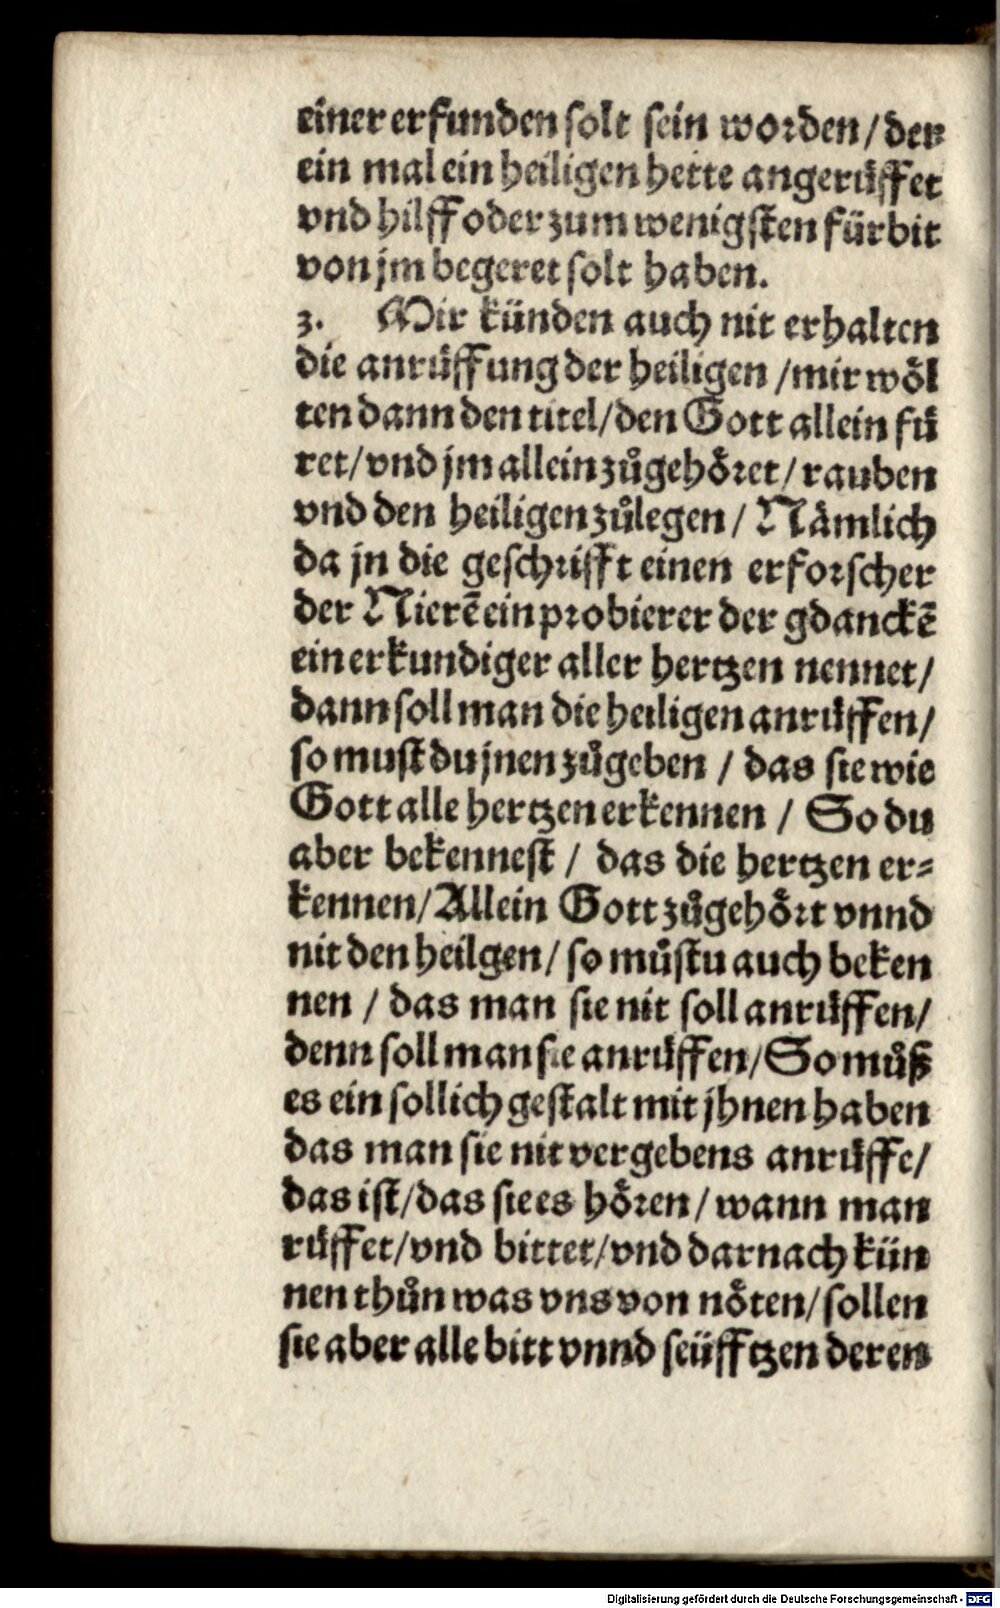 einer erfunden solt sein worden / der
ein mal ein heiligen hette angerüffet
vnd hilff oder zum wenigsten fürbit
von jm begeret solt haben.
3. Mir künden auch nit erhalten
die anrüffung der heiligen / mir wöl
ten dann den titel / den Gott allein fü
ret / vnd jm allein zůgehöret / rauben
vnd den heiligen zůlegen / Nämlich
da jn die geschrifft einen erforscher
der Nierē ein probierer der gdanckē
ein erkundiger aller hertzen nennet /
dann soll man die heiligen anrüffen /
so must du jnen zůgeben / das sie wie
Gott alle hertzen erkennen / So du
aber bekennest / das die hertzen er=
kennen / Allein Gott zůgehört vnnd
nit den heilgen / so můstu auch beken
nen / das man sie nit soll anrüffen /
denn soll man sie anrüffen / So můß
es ein sollich gestalt mit jhnen haben
das man sie nit vergebens anrüffe /
das ist / das sie es hören / wann man
rüffet / vnd bittet / vnd darnach kün
nen thůn was vns von nöten / sollen
sie aber alle bitt vnnd seüfftzen deren
Digitalisierung gefördert durch die Deutsche Forschungsgemeinschaft - DFG